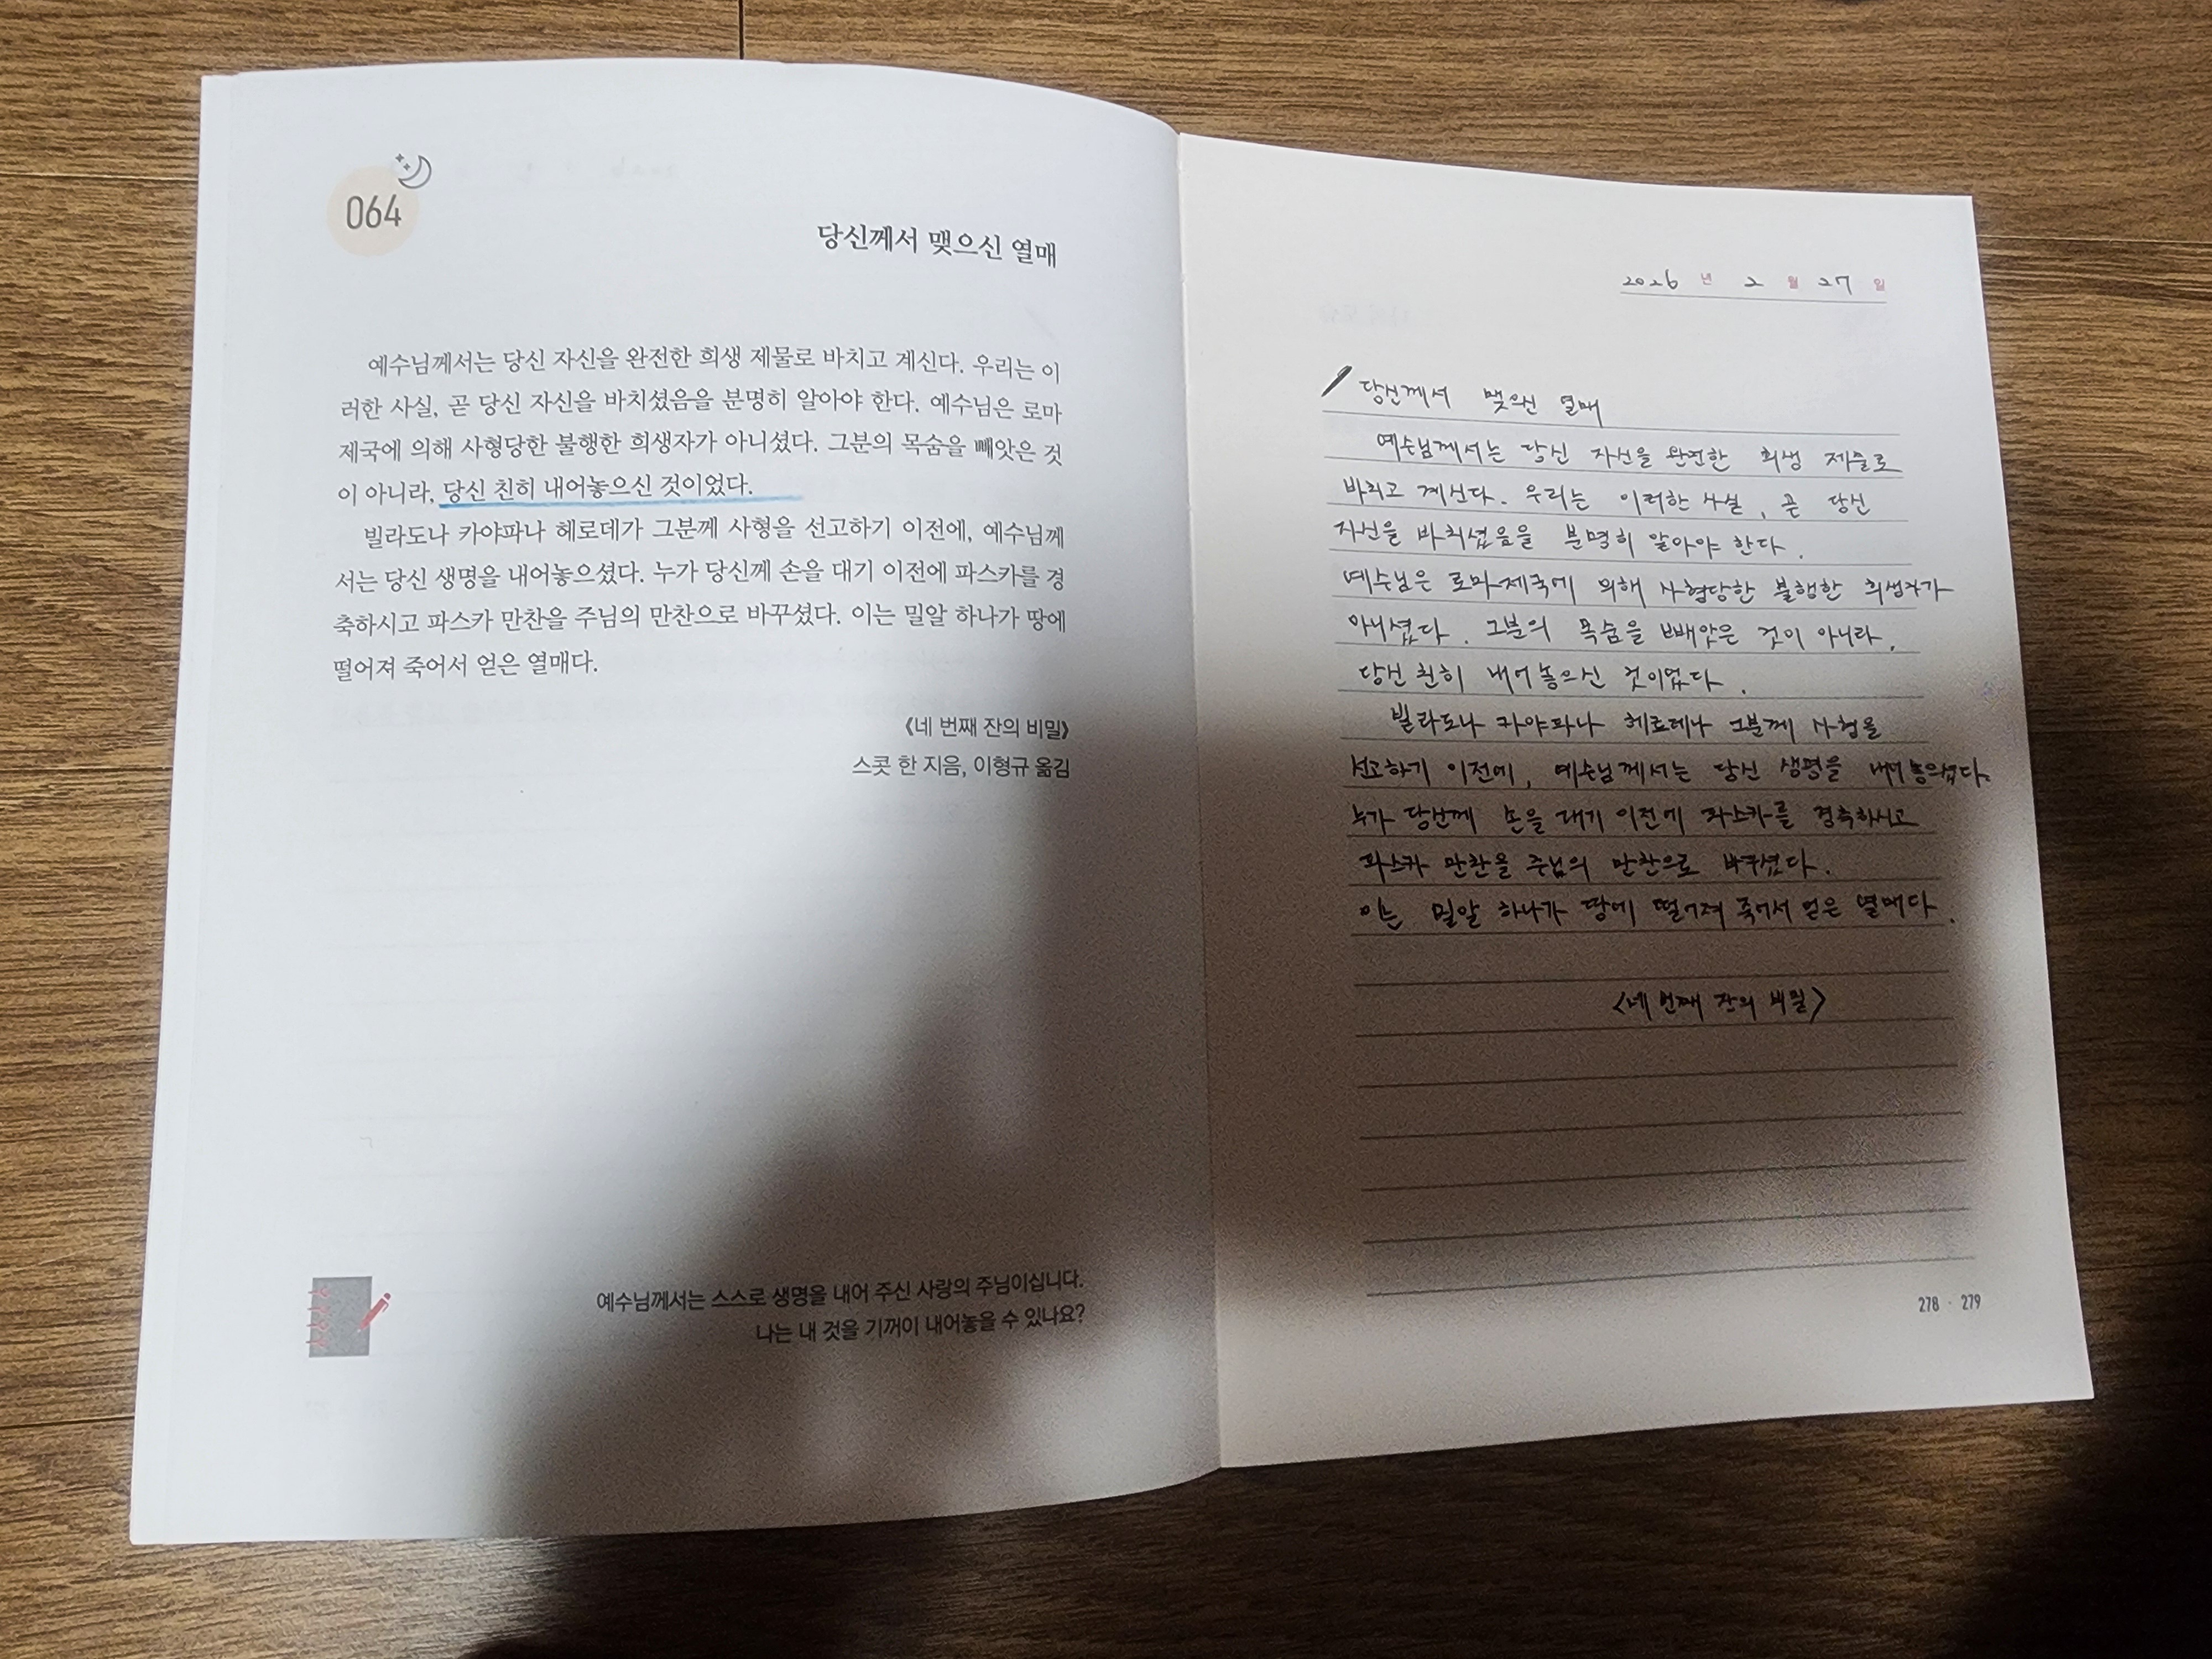 064
당신께서 맺으신 열매
예수님께서는 당신 자신을 완전한 희생 제물로 바치고 계신다. 우리는 이
러한 사실, 곧 당신 자신을 바치셨음을 분명히 알아야 한다. 예수님은 로마
제국에 의해 사형당한 불행한 희생자가 아니셨다. 그분의 목숨을 빼앗은 것
이 아니라, 당신 친히 내어놓으신 것이었다.
빌라도나 카야파나 헤로데가 그분께 사형을 선고하기 이전에, 예수님께
서는 당신 생명을 내어놓으셨다. 누가 당신께 손을 대기 이전에 파스카를 경
축하시고 파스카 만찬을 주님의 만찬으로 바꾸셨다. 이는 밀알 하나가 땅에
떨어져 죽어서 얻은 열매다.
《네 번째 잔의 비밀》
스콧 한 지음, 이형규 옮김
예수님께서는 스스로 생명을 내어 주신 사랑의 주님이십니다.
나는 내 것을 기꺼이 내어놓을 수 있나요?
2026 년 2 월 27 일
당신께서 맺으신 열매
예수님께서는 당신 자신을 완전한 희생 제물로
바치고 계신다. 우리는 이러한 사실, 곧 당신
자신을 바치셨음을 분명히 알아야 한다.
예수님은 로마제국에 의해 사형당한 불행한 희생자가
아니셨다. 그분의 목숨을 빼앗은 것이 아니라,
당신 친히 내어놓으신 것이었다.
빌라도나 카야파나 헤로데나 그분께 사형을
선고하기 이전에, 예수님께서는 당신 생명을 내어놓으셨다.
누가 당신께 손을 대기 이전에 파스카를 경축하시고
파스카 만찬을 주님의 만찬으로 바꾸셨다.
이는 밀알 하나가 땅에 떨어져 죽어서 얻은 열매다.
<네 번째 잔의 비밀>
278 · 279